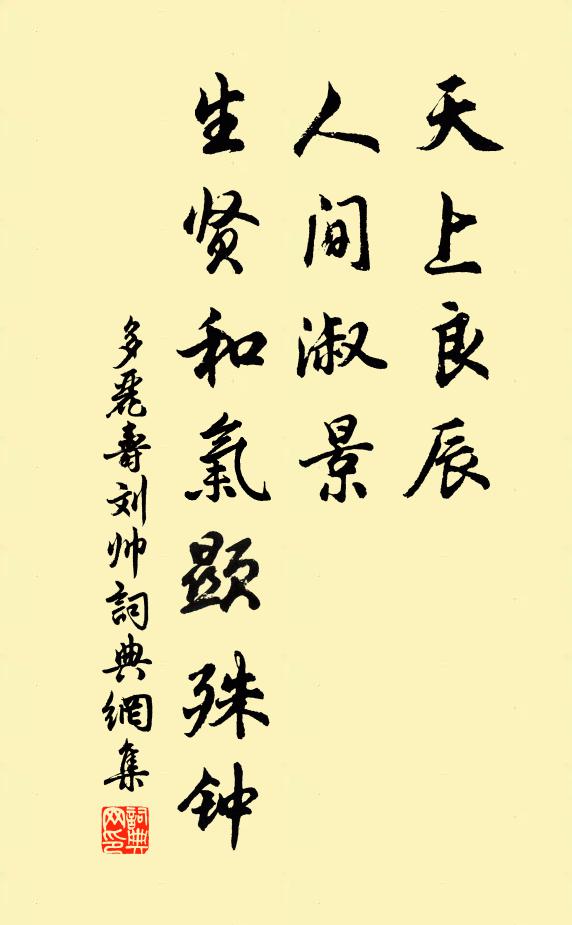 天上良辰
人间淑景
生贤和氣顕殊钟
多麗壽刘帅詞典網集
詞典网印